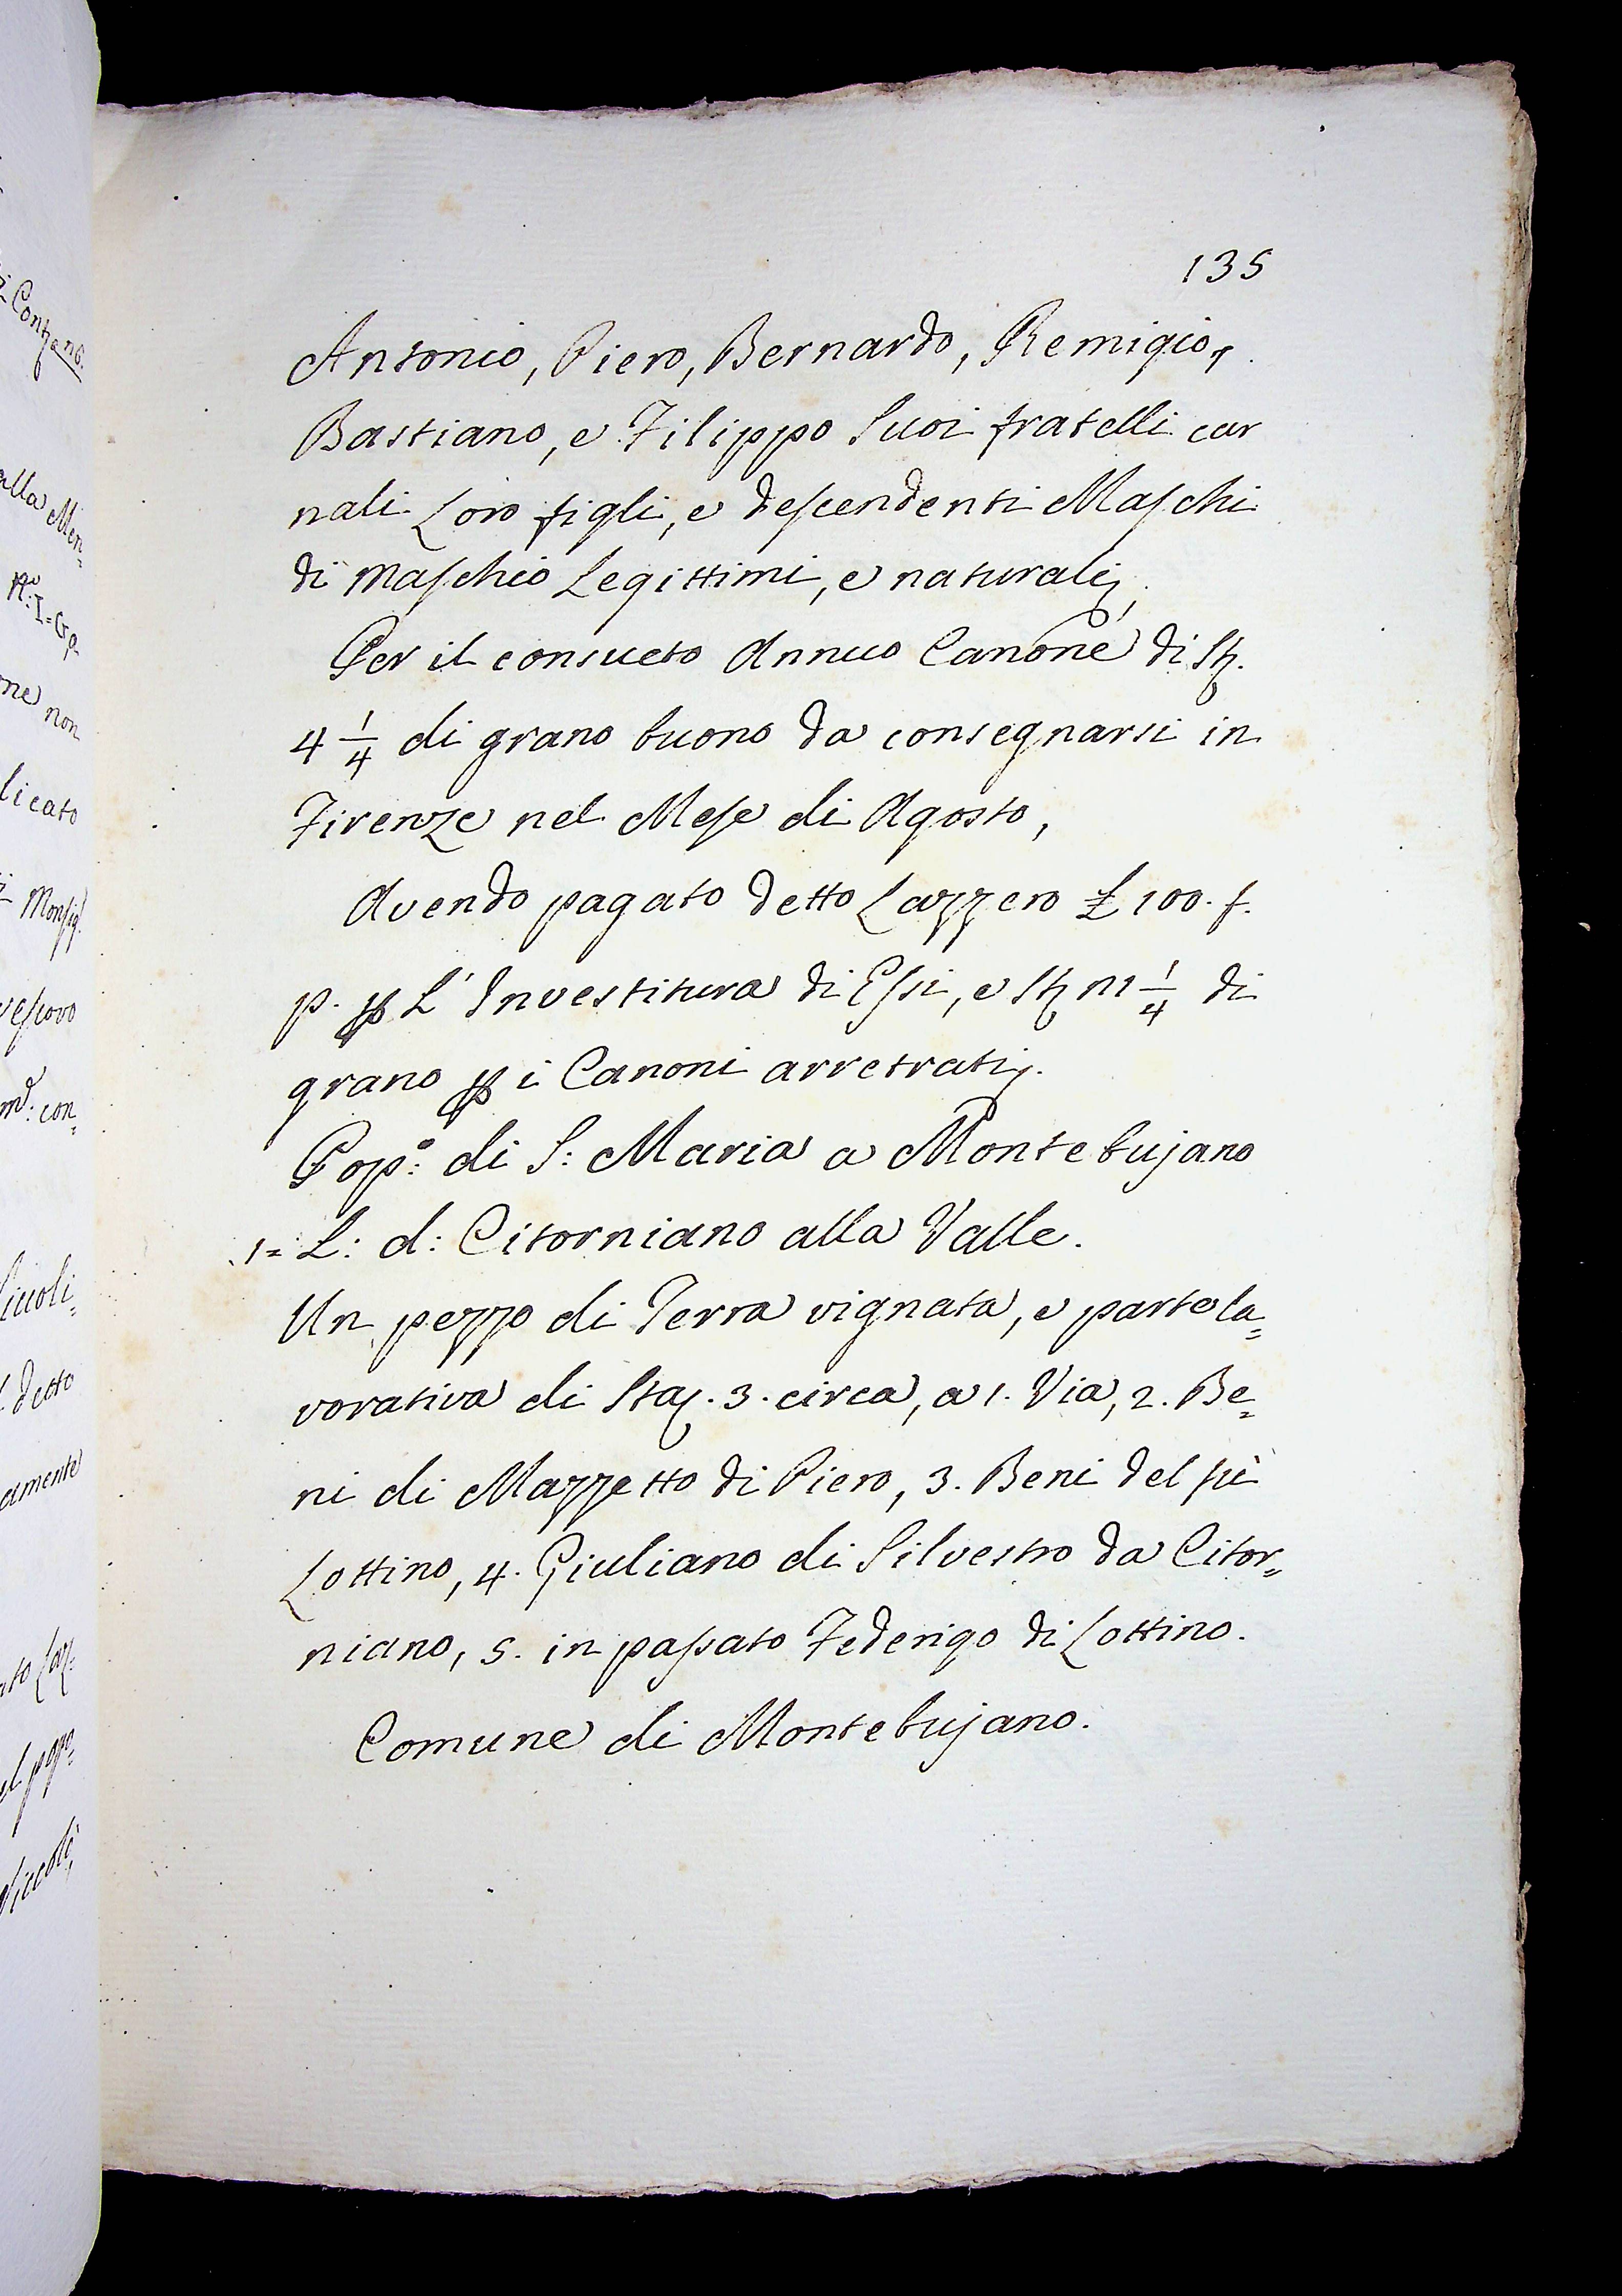 135
Antonio, Piero, Bernardo, Remigio,
Bastiano, e Filippo Suoi fratelli car
nali Loro figli, e descendenti Maschi
di Maschio Legittimi, e naturali,
Per il consueto Annuo Canone di St.
4 1/4 di grano buono da consegnarsi in
Firenze nel Mese di Agosto,
Avendo pagato detto Lazzero £ 100. f.
p. p L' Investitura di Essi, e St 1/4 di
grano p i Canoni arretrati.
Pop:° di S: Maria a Montebujano
1= L: d: Citorniano alla Valle.
Un pezzo di Terra vignata, e parte la=
vorativa di Staj. 3. circa, a 1. Via, 2. Be=
ni di Mazzetto di Piero, 3. Beni del fù
Lottino, 4. Giuliano di Silvestro da Citor=
niano, 5. in passato Federigo di Lottino.
Comune di Montebujano.